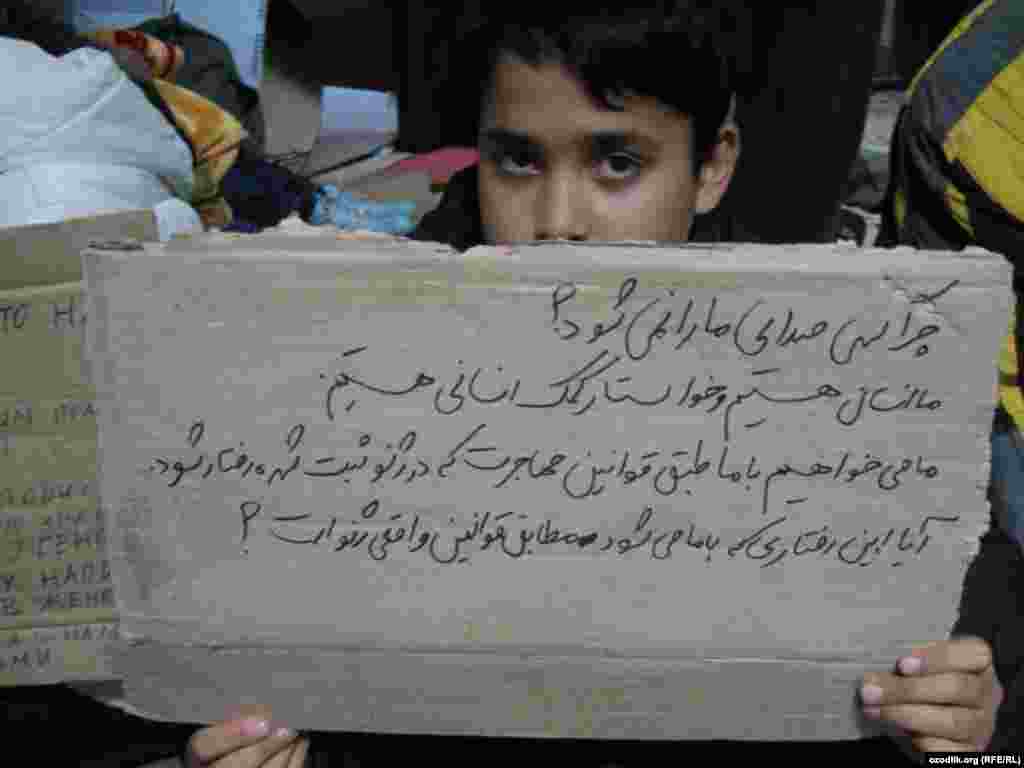 چرا کسی صدای ما را نمی شود؟
ما انسان هستیم و خواستار کمک انسانی هستیم.
ما می خواهیم با ما طبق قوانین مهاجرت که در ژنو ثبت شده رفتار شود.
آیا این رفتاری که با ما می شود مطابق قوانین واقعی ژنو است؟
ТО Н
В ЖЕНЕ
ozodlik.org (RFE/RL)